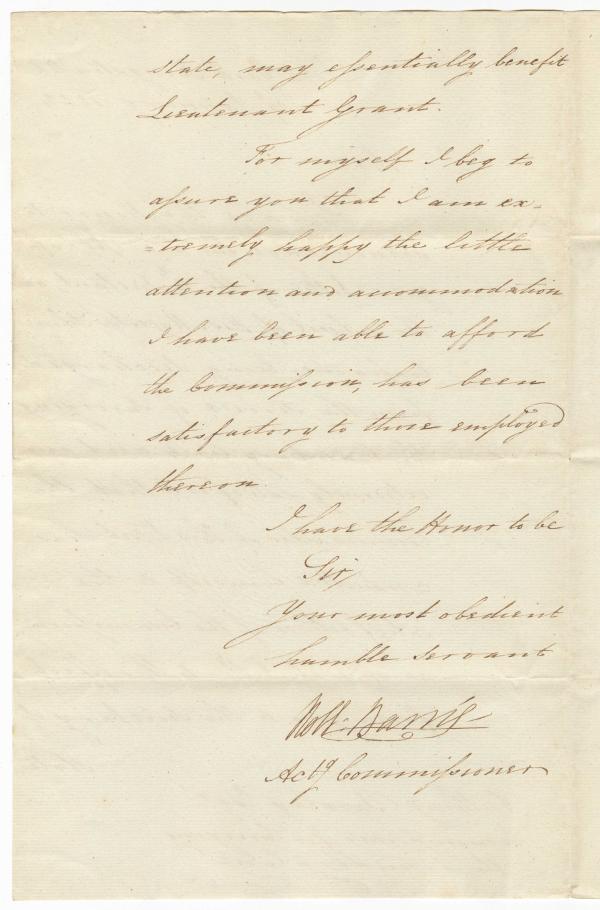 state, may eſsentially benefit
Lieutenant Grant.
For myself I beg to
aſsure you that I am ex=
=tremely happy the little
attention and accommodation
I have been able to afford
the Commiſsion, has been
satisfactory to those employed
thereon
I have the Honor to be
Sir,
Your most obedient
humble servant
Robt. Barrie
Actg Commiſsioner